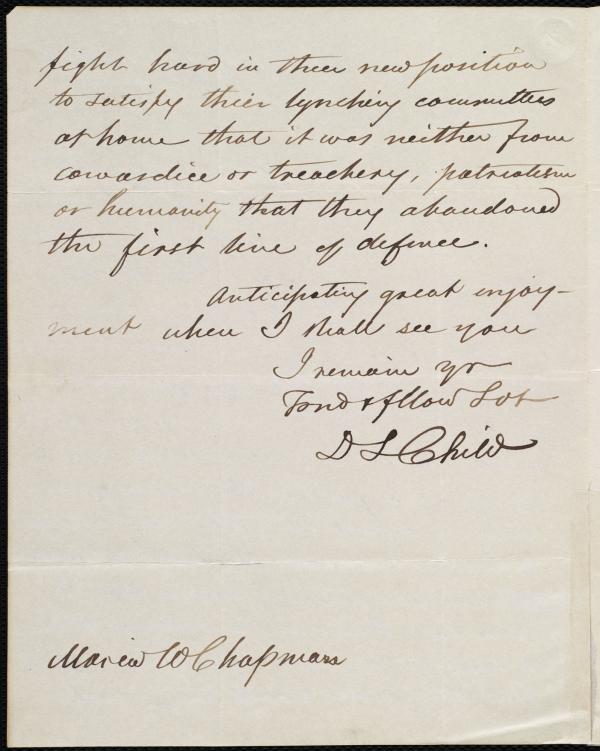 fight hard in their new position
to satisfy thier lynching committees
at home that it was neither from
cowardice or treachery, patriotism
or humanity that they abandoned
the first line of defence.
Anticipating great enjoy-
ment when I shall see you
I remain yr
& fllow
D L Child
Maria W Chapman